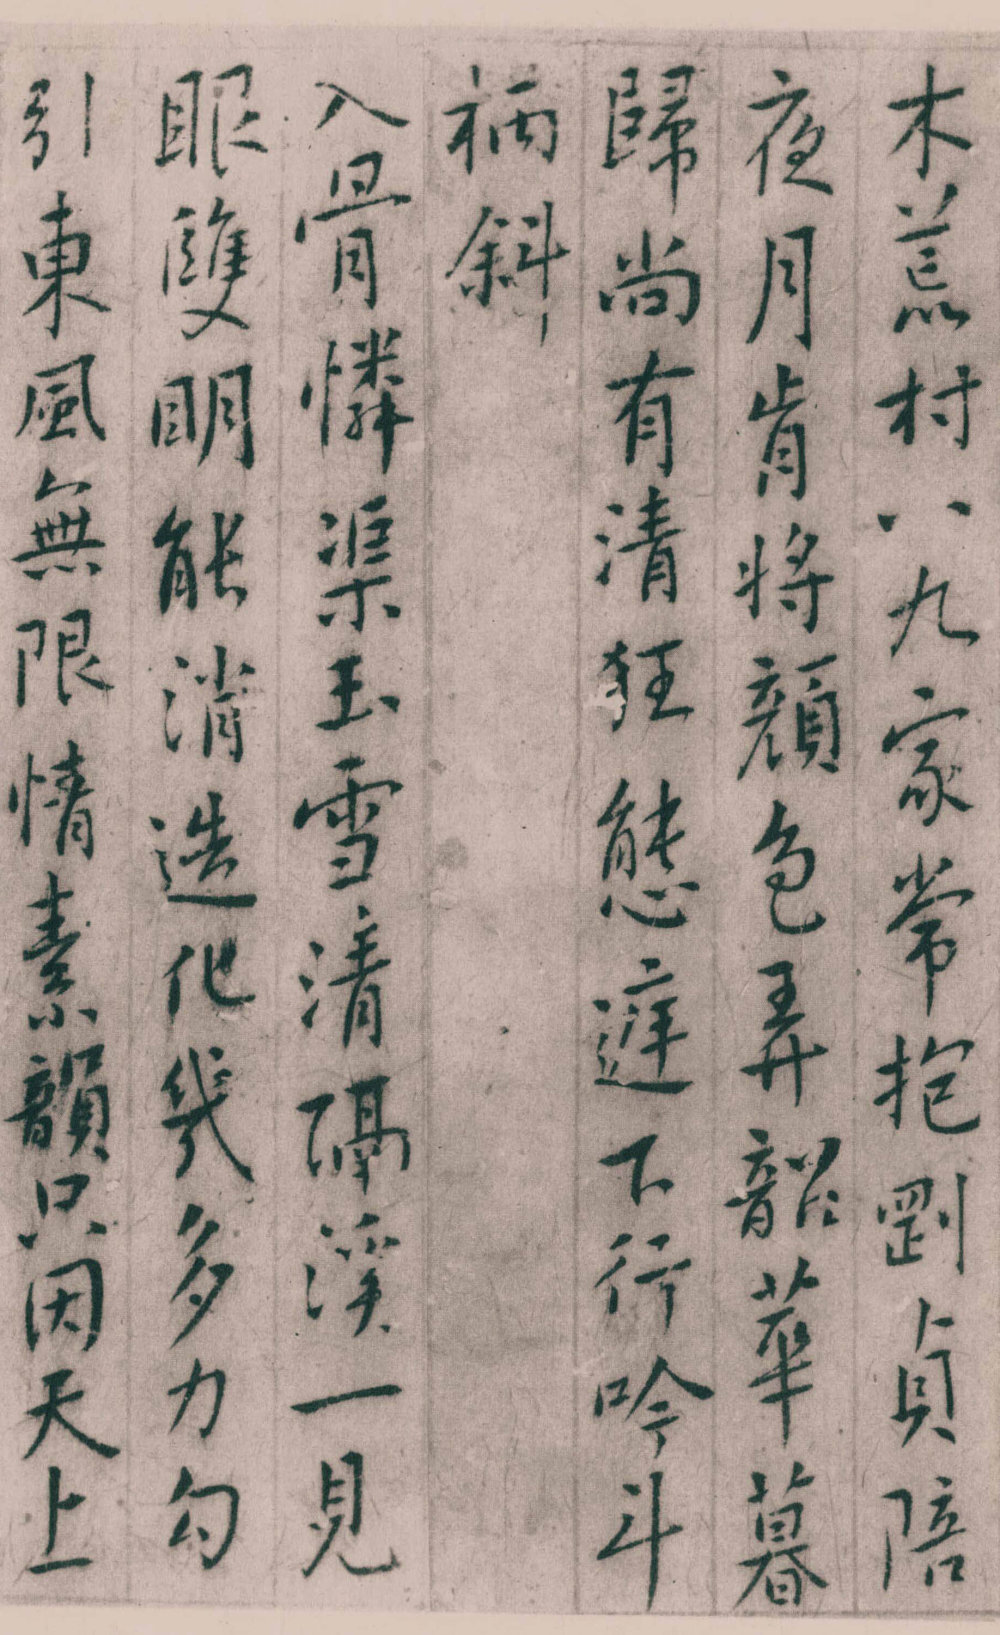 木荒村八九家常抱劉貞陪
夜月肯將顏色弄韶華暮
歸尚有清狂態遲下行吟斗
柄斜
入骨憐渠玉雪清隔溪一見
眼雙明能消造化幾多力勾
引東風無限情素韻只因天上